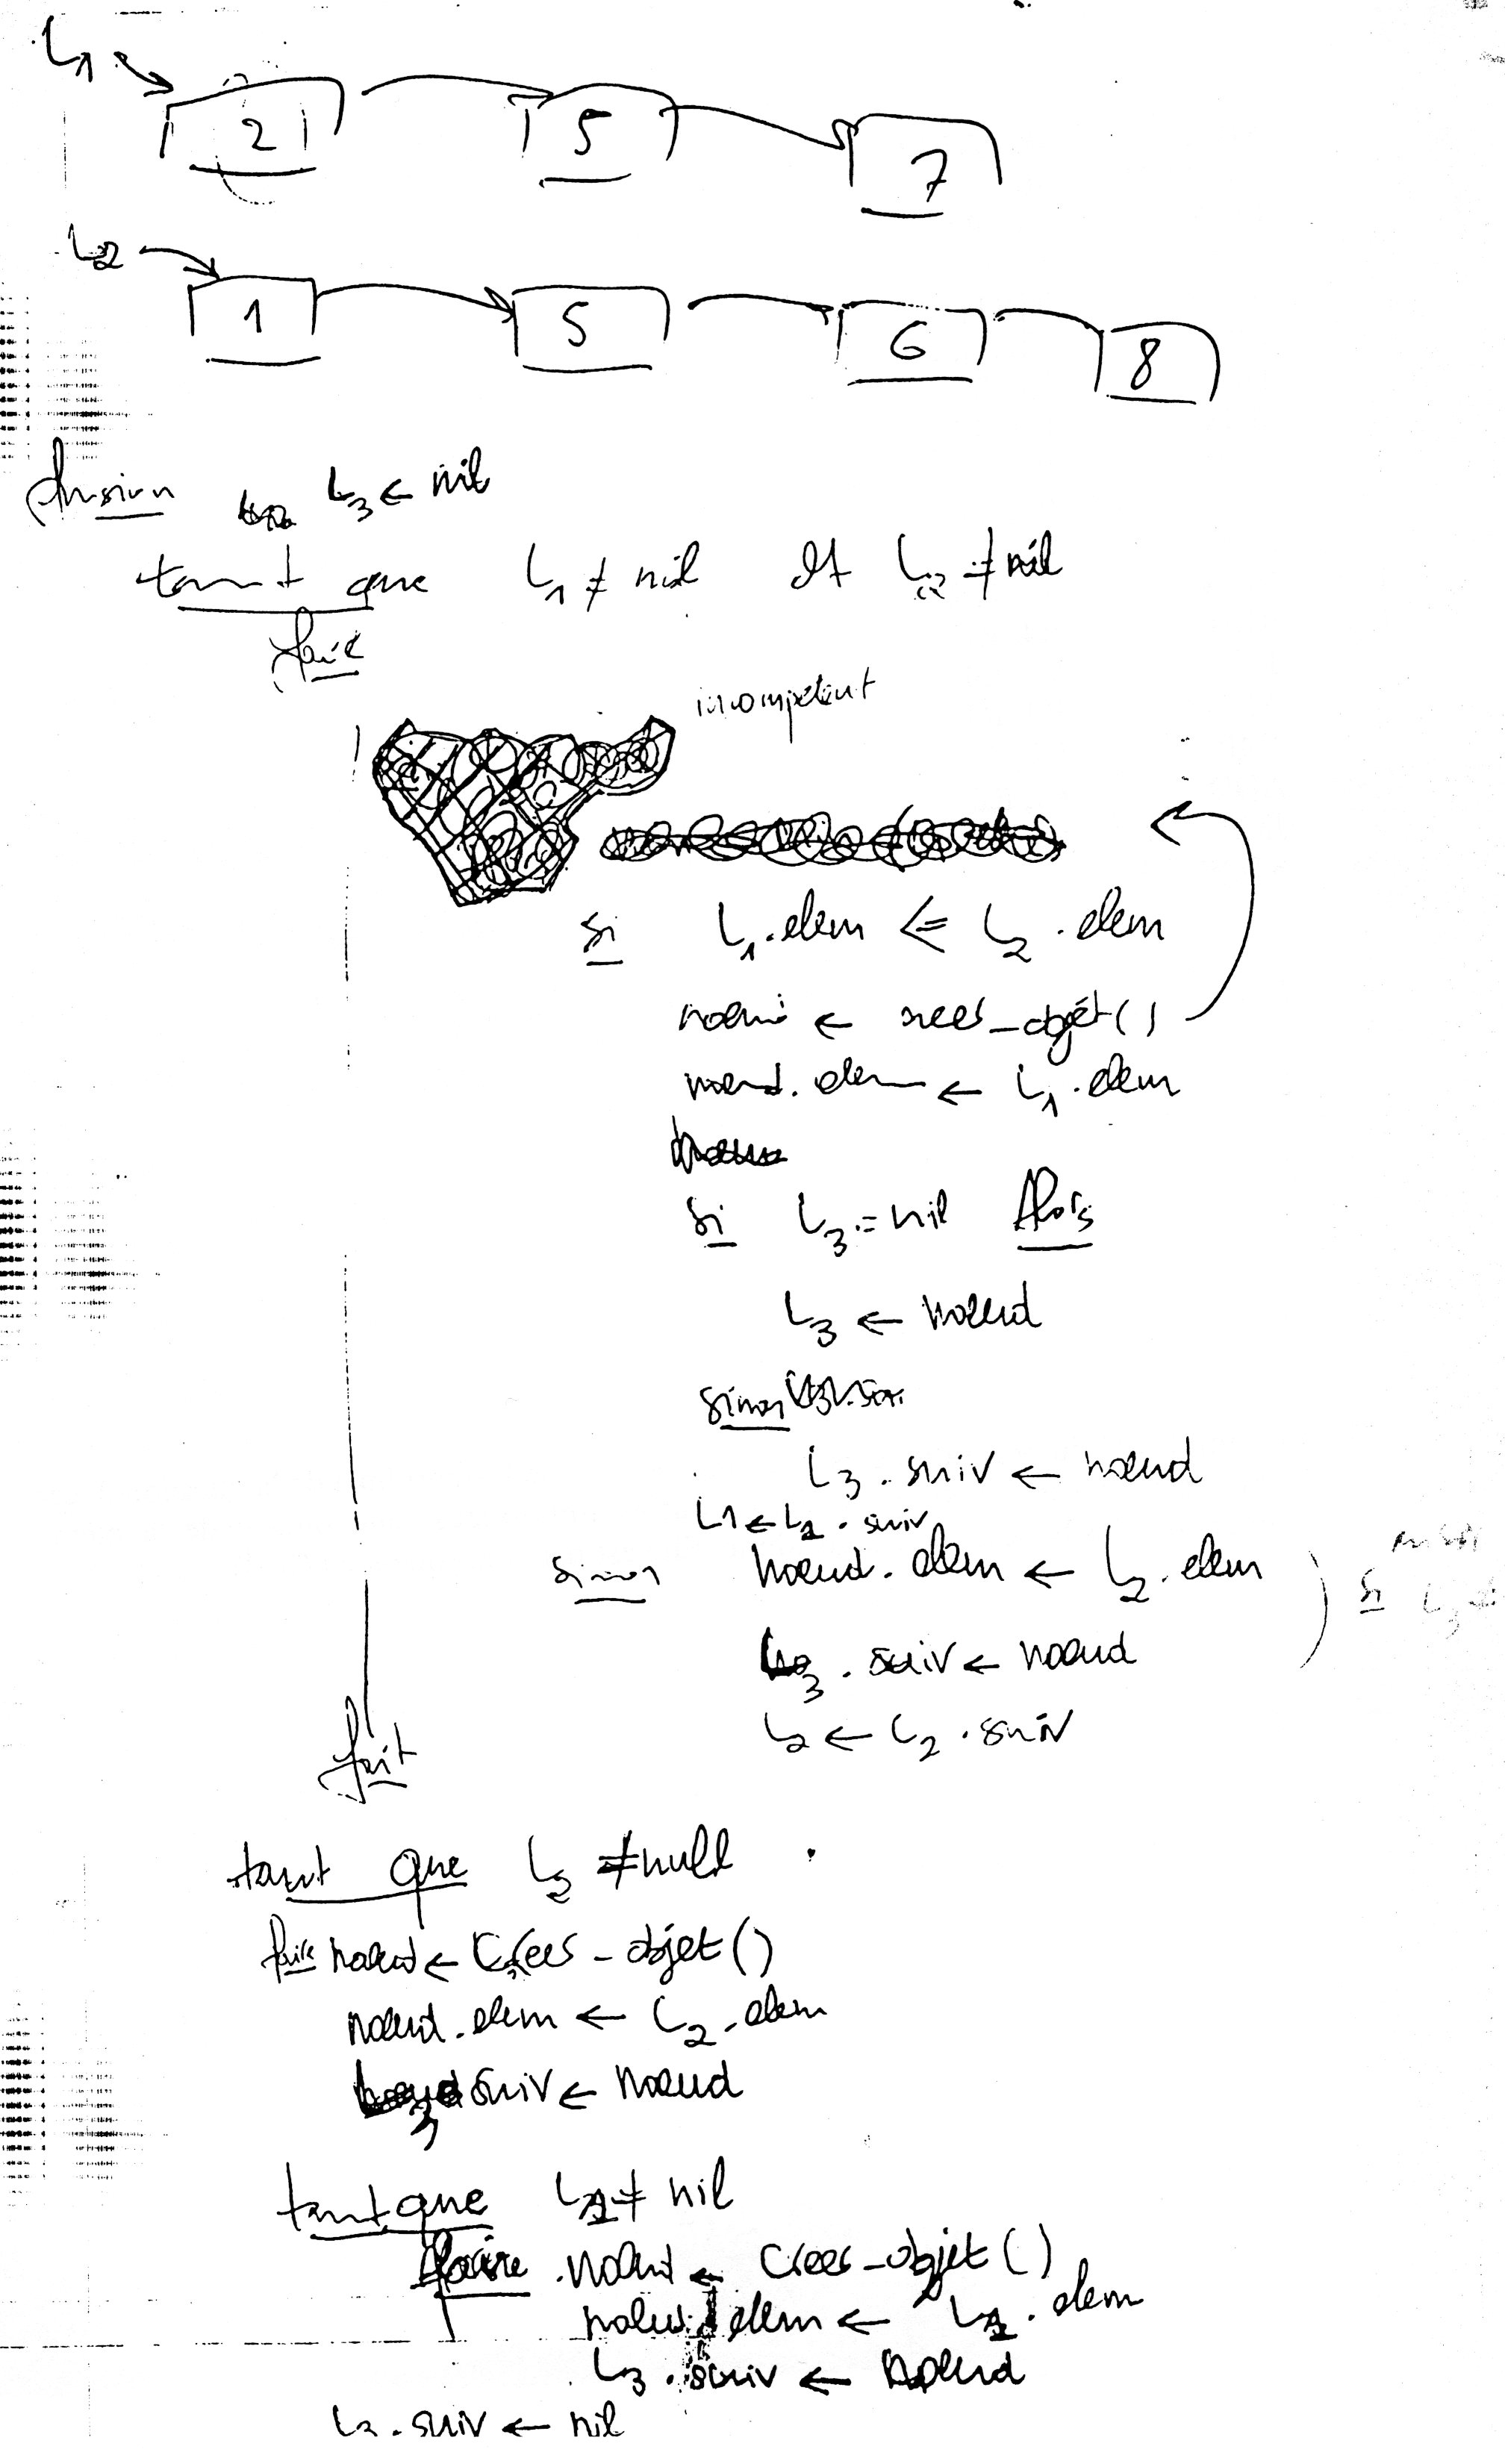 L1
2 5 7
L2
1 5 6 8
fusion L3 ← nil
tant que L1 ≠ nil et L2 ≠ nil
faire
incompétent
si L1.elem <= L2.elem
noeud ← creer_objet()
noeud.elem ← L1.elem
si L3 = nil Alors
L3 ← noeud
sinon
L3.suiv ← noeud
L1 ← L1.suiv
sinon noeud.elem ← L2.elem
si
L3.suiv ← noeud
L2 ← L2.suiv
fait
tant que L2 ≠ null
faire noeud ← Creer_objet()
noeud.elem ← L2.elem
L3 suiv ← noeud
tant que L1 ≠ nil
faire noeud ← Creer_objet()
noeud.elem ← L1.elem
L3.suiv ← noeud
L3.suiv ← nil